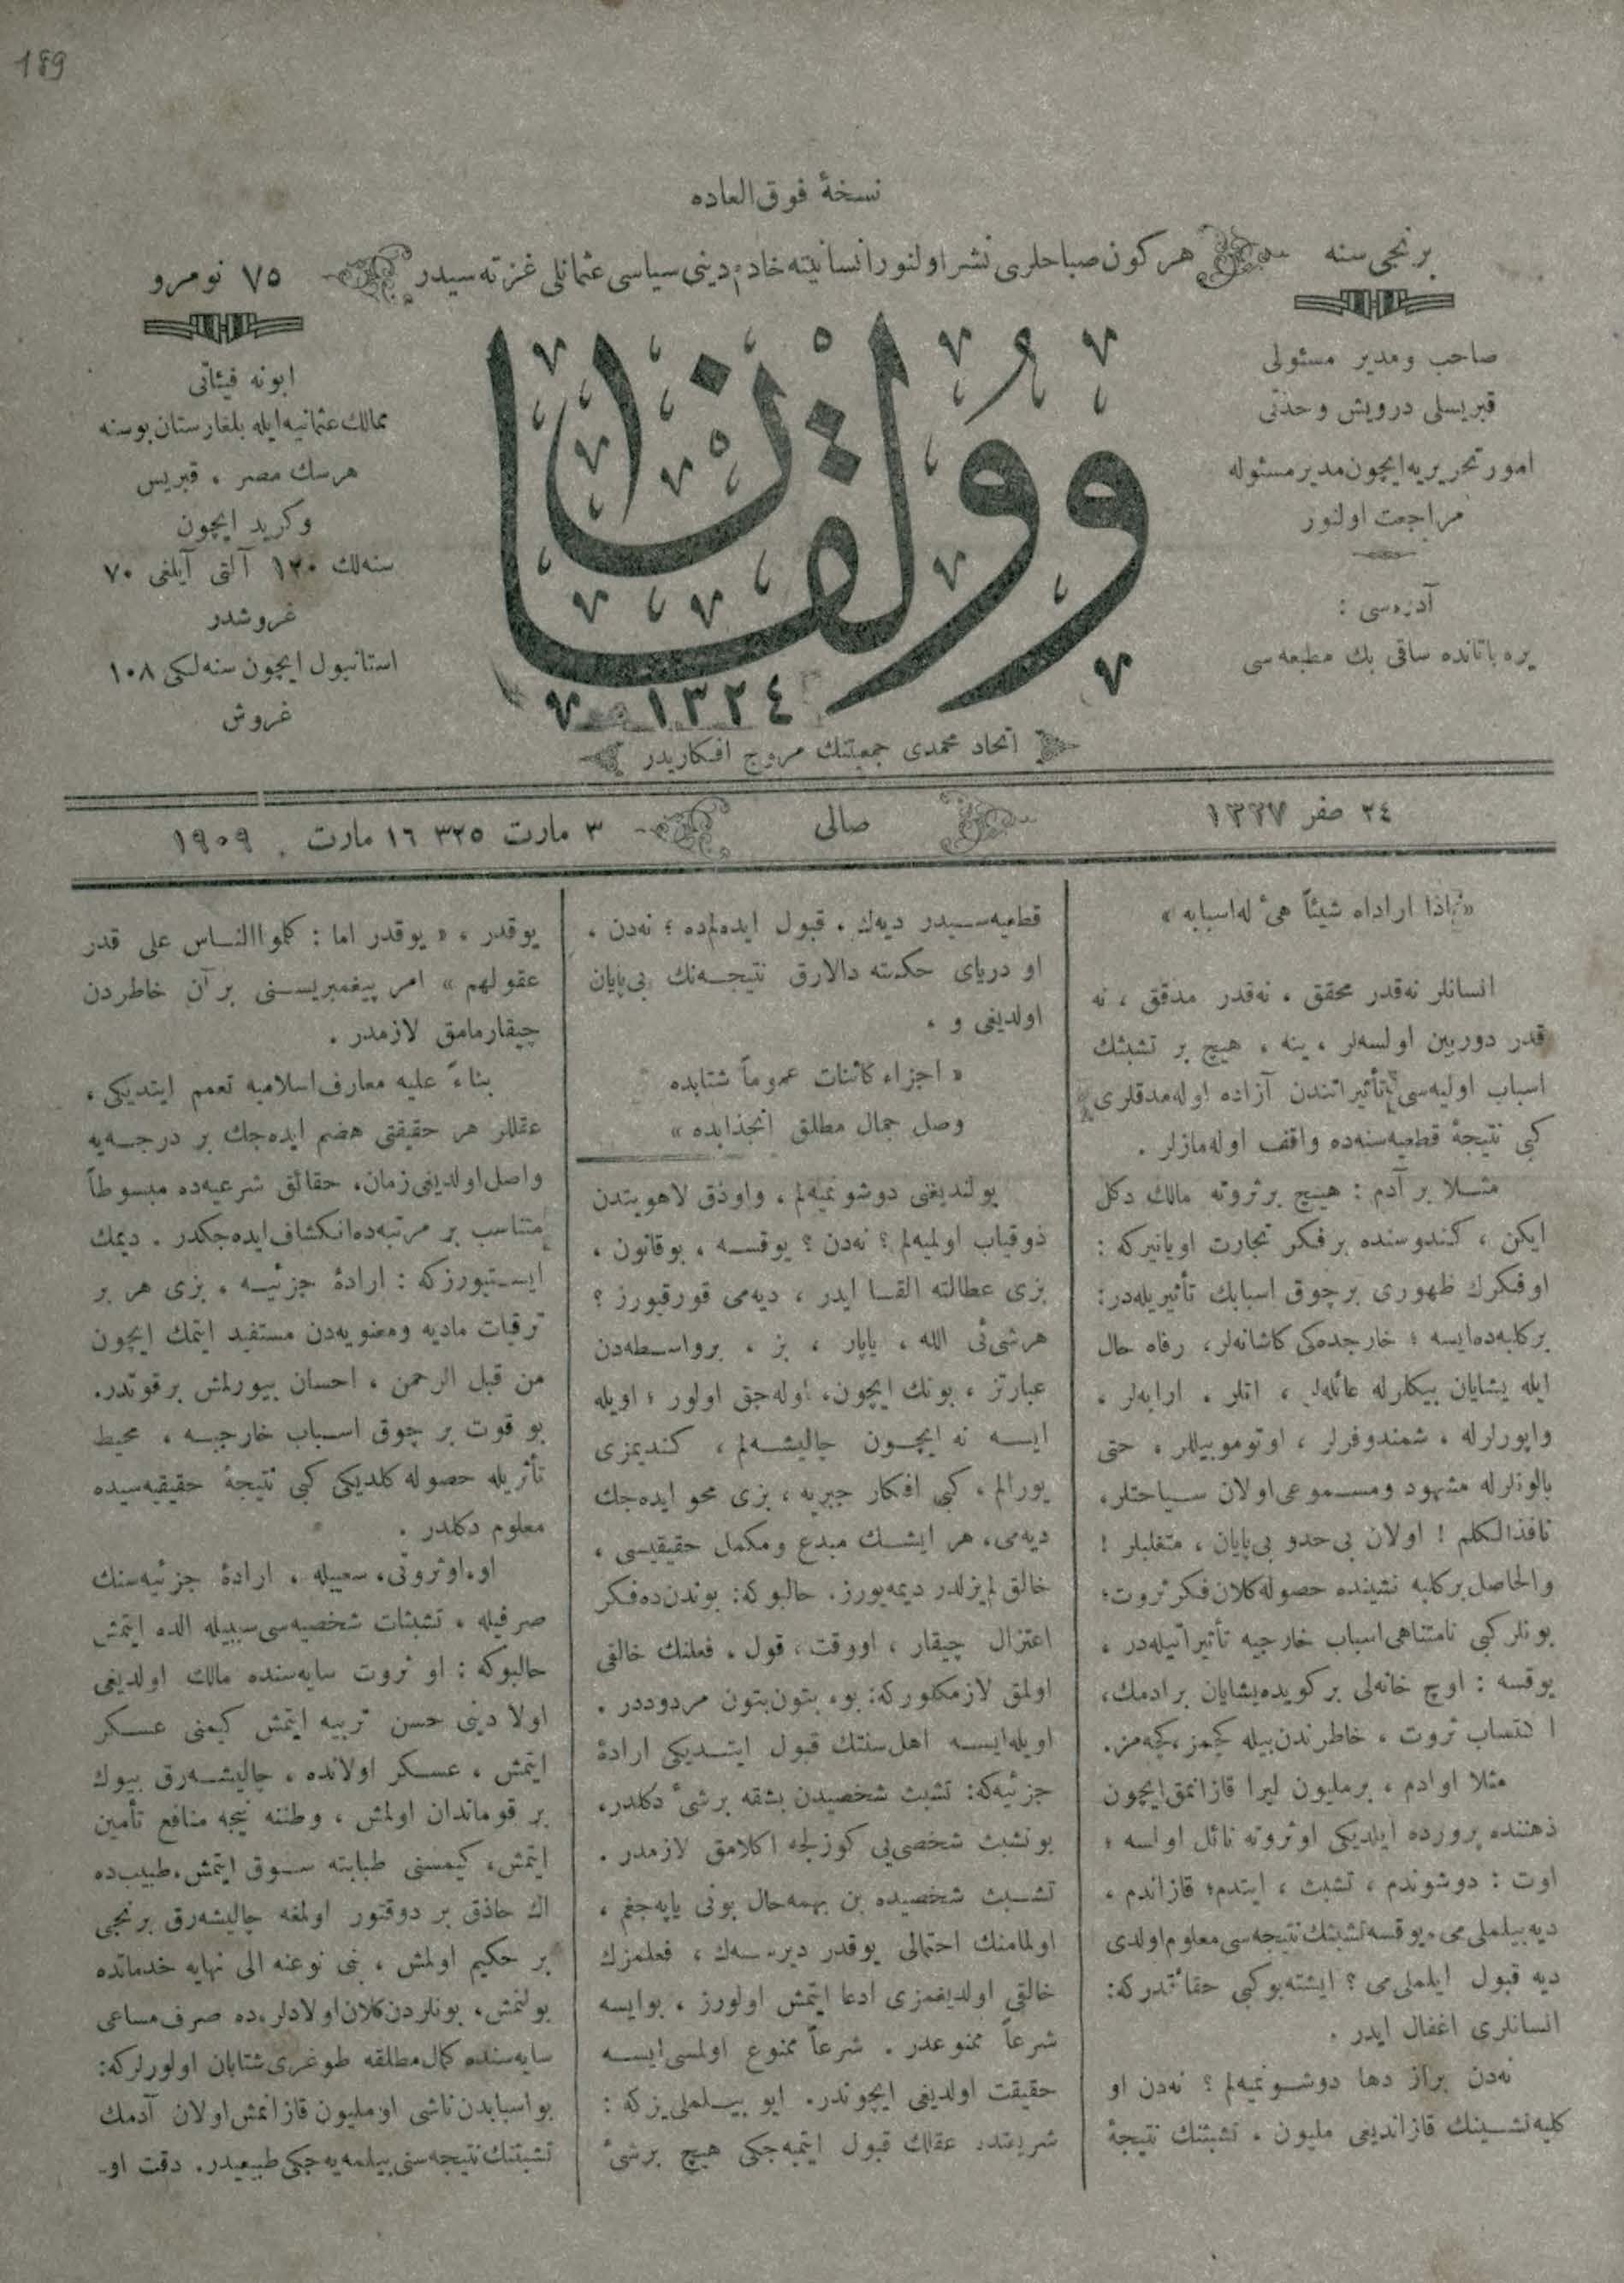 189
نسخهٔ فوق العاده
برنجی سنه
هر كون صباحلری نشر اولنور انسانیته خادم دینی سیاسی عثمانلی غزته سیدر
٧٥ نومرو
صاحب ومدیر مسئولی
قبریسلی درویش وحدتی
امور تحریریه ایچون مدیر مسئوله
مراجعت اولنور
آدره سی :
یره باتانده ساقی بك مطبعه سی
وولقان
١٣٢٤
اتحاد محمدی جمعیتنك مروج افكاریدر
ابونه فیئاتی
ممالك عثمانیه ایله بلغارستان بوسنه
هرسك مصر ، قبریس
وكرید ایچون
سنه لك ١٢٠ آلتی آیلغی ٧٠
غروشدر
استانبول ایچون سنه لكی ١٠٨
غروش
٢٤ صفر ١٣٢٧
صالی
٣ مارت ٣٢٥ ١٦ مارت ١٩٠٩
«اذا اراداه شیئاً هیٴ له اسبابه »
انسانلر نه قدر محقق ، نه قدر مدقق ، نه
قدر دوربین اولسه لر ، ینه ، هیچ بر تشبثك
اسباب اولیه سی تأثیراتندن آزاده اوله مدقلری
كبی نتیجهٔ قطعیه سنه ده واقف اوله مازلر .
مثلا بر آدم : هیچ بر ثروته مالك دكل
ایكن ، كندوسنده بر فكر تجارت اویانیركه :
او فكرك ظهوری بر چوق اسبابك تأثیریله در :
بر كلبه ده ایسه ؛ خارجده كی كاشانه لر ، رفاه حال
ایله یشایان بیكلرله عائله لر ، اتلر . ارابه لر ،
واپورلرله ، شمندوفرلر ، اوتوموبیللر ، حتی
بالونلرله مشهود ومسموعی اولان سیاحتلر ،
نافذالكلم ! اولان بی حدو بی پایان ، متغلبلر !
والحاصل بر كلبه نشینده حصوله كلان فكر ثروت ؛
بونلر كبی نامتناهی اسباب خارجیه تأثیراتیله در ،
یوقسه : اوچ خانه لی بر كویده یشایان بر ادمك ،
اكتساب ثروت ، خاطرندن بیله كچمز ، كچه مز .
مثلا اوادم ، بر ملیون لیرا قازانمق ایچون
ذهننده پرورده ایلدیكی او ثروته نائل اولسه ؛
اوت : دوشوندم ، تشبث ، ایتدم ؛ قازاندم ،
دیه بیلملی می ، یوقسه تشبثك نتیجه سی معلوم اولدی
دیه قبول ایلملی می ؟ ایشته بو كبی حقائقدركه :
انسانلری اغفال ایدر .
نه دن براز دها دوشونمیه لم ؟ نه دن او
كلبه نشینك قازاندیغی ملیون ، تشبثنك نتیجهٔ
قطعیه سیدر دیه لم . قبول ایده لم ده ؛ نه دن ،
او دریای حكمته دالارق نتیجه نك بی پایان
اولدیغی و ،
« اجزاء كائنات عموماً شتابده
وصل جمال مطلق انجذابده »
بولندیغنی دوشونمیه لم ، واوذق لاهوتیدن
ذوقیاب اولمیه لم ؟ نه دن ؟ یوقسه ، بوقانون ،
بزی عطالته القا ایدر ، دیه می قورقیورز ؟
هر شیئی الله ، یاپار ، بز ، بر واسطه دن
عبارتز ، بونك ایچون ، اوله جق اولور ؛ اویله
ایسه نه ایچون چالیشه لم ، كندیمزی
یورالم ، كبی افكار جبریه ، بزی محو ایده جك
دیه می ، هر ایشك مبدع ومكمل حقیقیسی ،
خالق لم یزلدر دیمه یورز . حالبوكه : بوندن ده فكر
اعتزال چیقار ، اووقت ، قول ، فعلنك خالقی
اولمق لازمكلوركه : بو ، بتون بتون مردوددر .
اویله ایسه اهل سنتك قبول ایتدیكی ارادهٔ
جزئیه كه : تشبث شخصیدن بشقه بر شیٴ دكلدر ،
بو تشبث شخصی یی كوزلجه اكلامق لازمدر .
تشبث شخصیده بن بهمه حال بونی یاپه جغم ،
اولمامنك احتمالی یوقدر دیرسه ك ، فعلمزك
خالقی اولدیغمزی ادعا ایتمش اولورز ، بوایسه
شرعاً ممنوعدر . شرعاً ممنوع اولمسی ایسه
حقیقت اولدیغی ایچوندر . ایو بیلملی یز كه :
شریعتده عقلك قبول ایتمیه جكی هیچ بر شیٴ
یوقدر ، « یوقدر اما : كلموا الناس علی قدر
عقولهم » امر پیغمبریسنی بر آن خاطردن
چیقارمامق لازمدر .
بناءً علیه معارف اسلامیه تعمم ایتدیكی ،
عقللر هر حقیقتی هضم ایده جك بر درجه یه
واصل اولدیغی زمان ، حقائق شرعیه ده مبسوطاً
متناسب بر مرتبه ده انكشاف ایده جكدر . دیمك
ایستیورزكه : ارادهٔ جزئیه ، بزی هر بر
ترقیات مادیه ومعنویه دن مستفید ایتمك ایچون
من قبل الرحمن ، احسان بیورلمش بر قوتدر .
بو قوت بر چوق اسباب خارجیه ، محیط
تأثریله حصوله كلدیكی كبی نتیجهٔ حقیقیه سیده
معلوم دكلدر .
او ، اوثروتی ، سعییله ، ارادهٔ جزئیه سنك
صرفیله ، تشبثات شخصیه سی سببیله الده ایتمش
حالبوكه : او ثروت سایه سنده مالك اولدیغی
اولاد ینی حسن تربیه ایتمش كیمنی عسكر
ایتمش ، عسكر اولانده ، چالیشه رق بیوك
بر قوماندان اولمش ، وطننه نیجه منافع تأمین
ایتمش ، كیمسنی طبابته سوق ایتمش ، طبیب ده
اك حاذق بر دوقتور اولمغه چالیشه رق برنجی
بر حكیم اولمش ، بنی نوعنه الی نهایه خدماتده
بولنمش ، بونلردن كلان اولادلر ، ده صرف مساعی
سایه سنده كمال مطلقه طوغری شتابان اولورلركه :
بو اسبابدن ناشی او ملیون قازانمش اولان آدمك
تشبثنك نتیجه سنی بیلمه یه جكی طبیعیدر . دقت او-